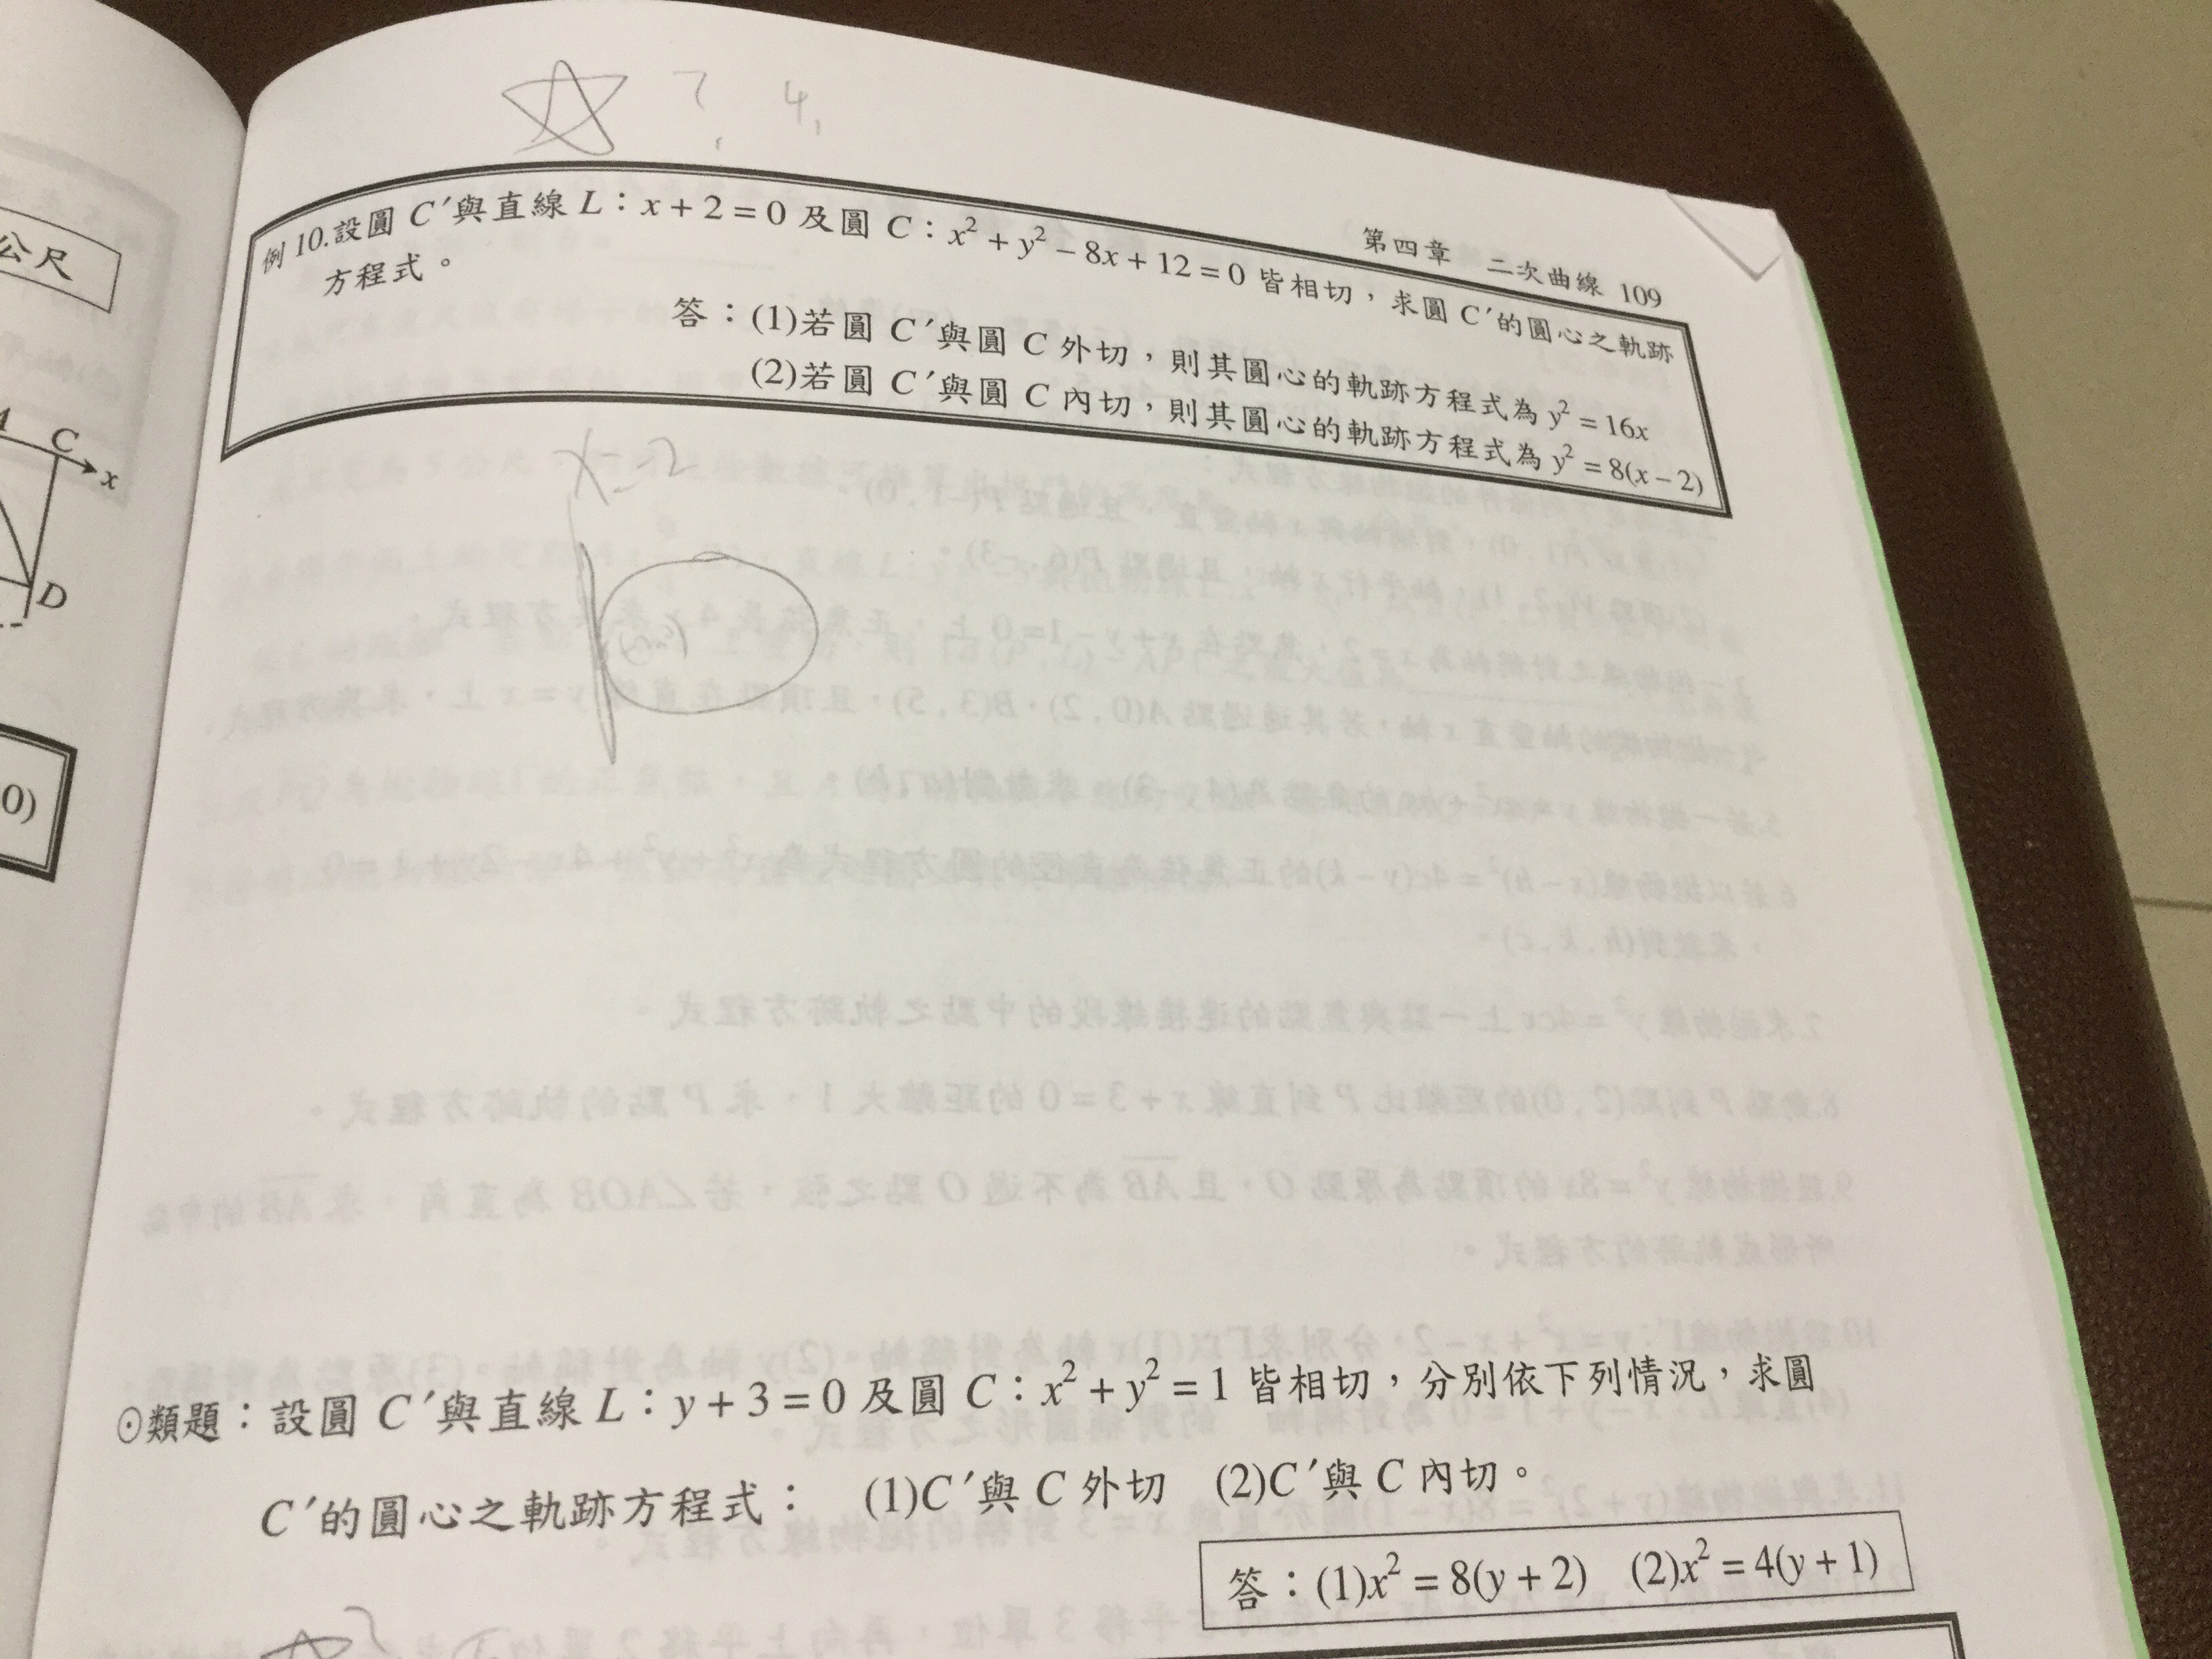 7 , 4 ,
第四章 二次曲線 109
例 10.設圓 C′與直線 L:x + 2 = 0 及圓 C:x² + y² − 8x + 12 = 0 皆相切,求圓 C′的圓心之軌跡
方程式。
答:(1)若圓 C′與圓 C 外切,則其圓心的軌跡方程式為 y² = 16x
(2)若圓 C′與圓 C 內切,則其圓心的軌跡方程式為 y² = 8(x − 2)
公尺
C
x
D
0)
x=-2
⊙類題:設圓 C′與直線 L:y + 3 = 0 及圓 C:x² + y² = 1 皆相切,分別依下列情況,求圓
C′的圓心之軌跡方程式: (1)C′與 C 外切 (2)C′與 C 內切。
答:(1)x² = 8(y + 2) (2)x² = 4(y + 1)